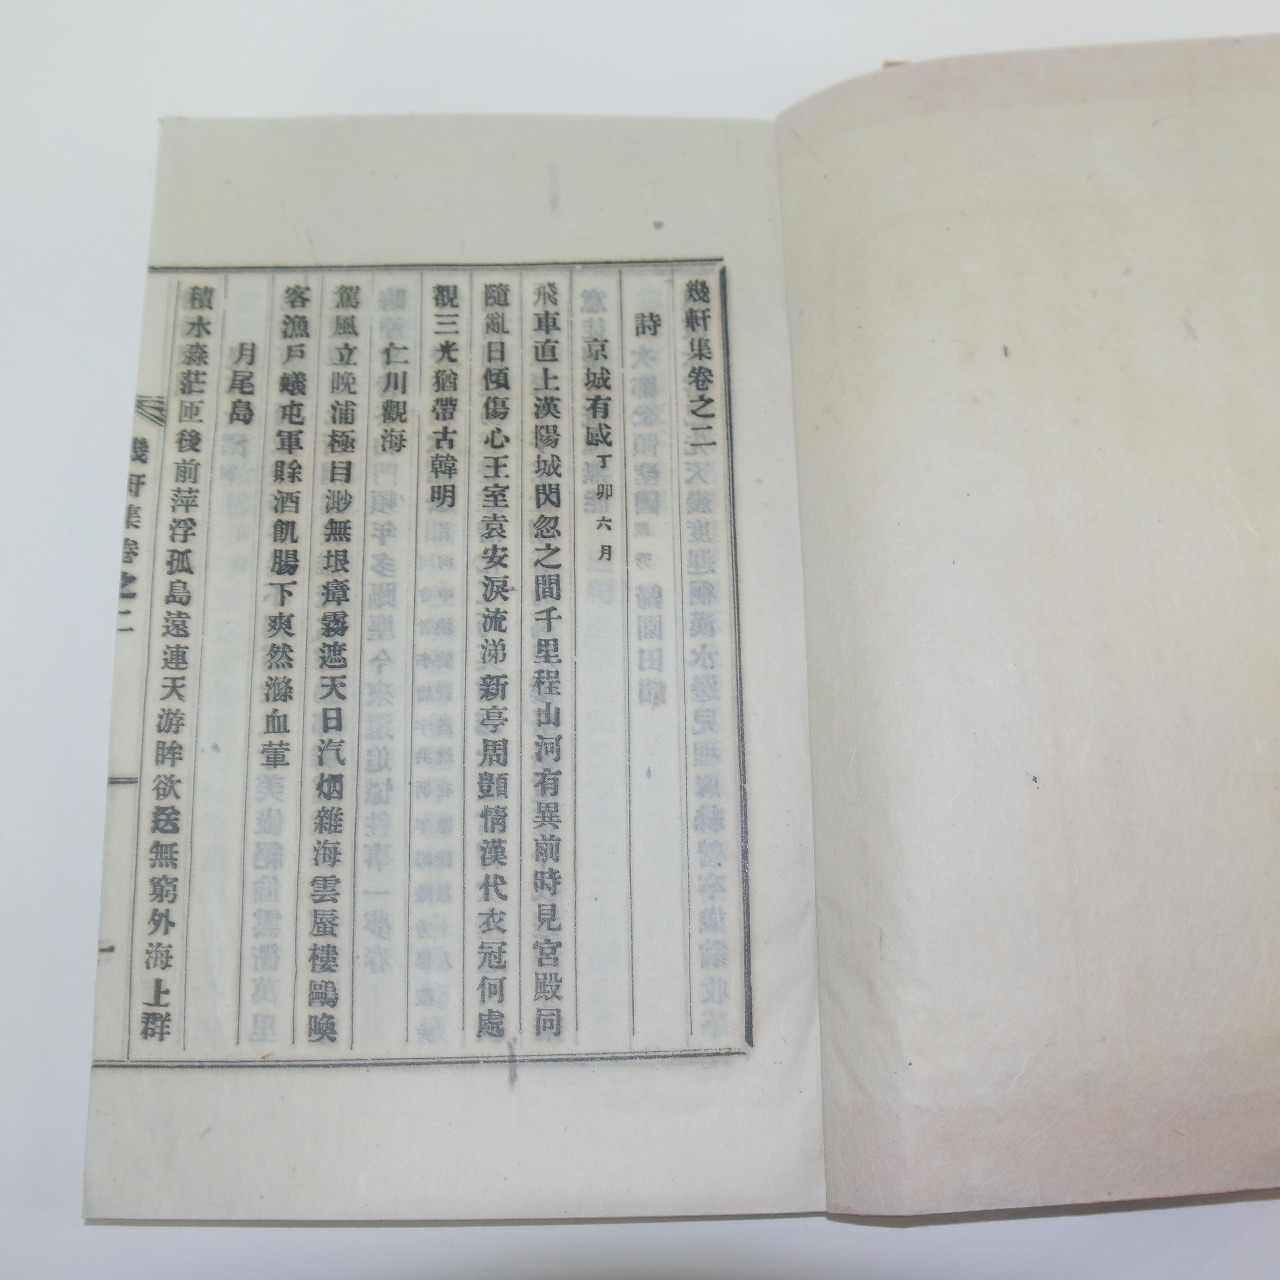 幾軒集卷之二
詩
京城有感丁卯六月
飛車直上漢陽城閃忽之間千里程山河有異前時見宮殿同
隨亂日傾傷心王室袁安淚流涕新亭周顗情漢代衣冠何處
覩三光猶帶古韓明
仁川觀海
駕風立晚浦極目渺無垠瘴霧遮天日汽烟雜海雲蜃樓鷗喚
客漁戶蟻屯軍賖酒飢腸下爽然滌血葷
月尾島
積水淼茫匝後前萍浮孤島遠連天游眸欲送無窮外海上群
幾軒集卷之二
一